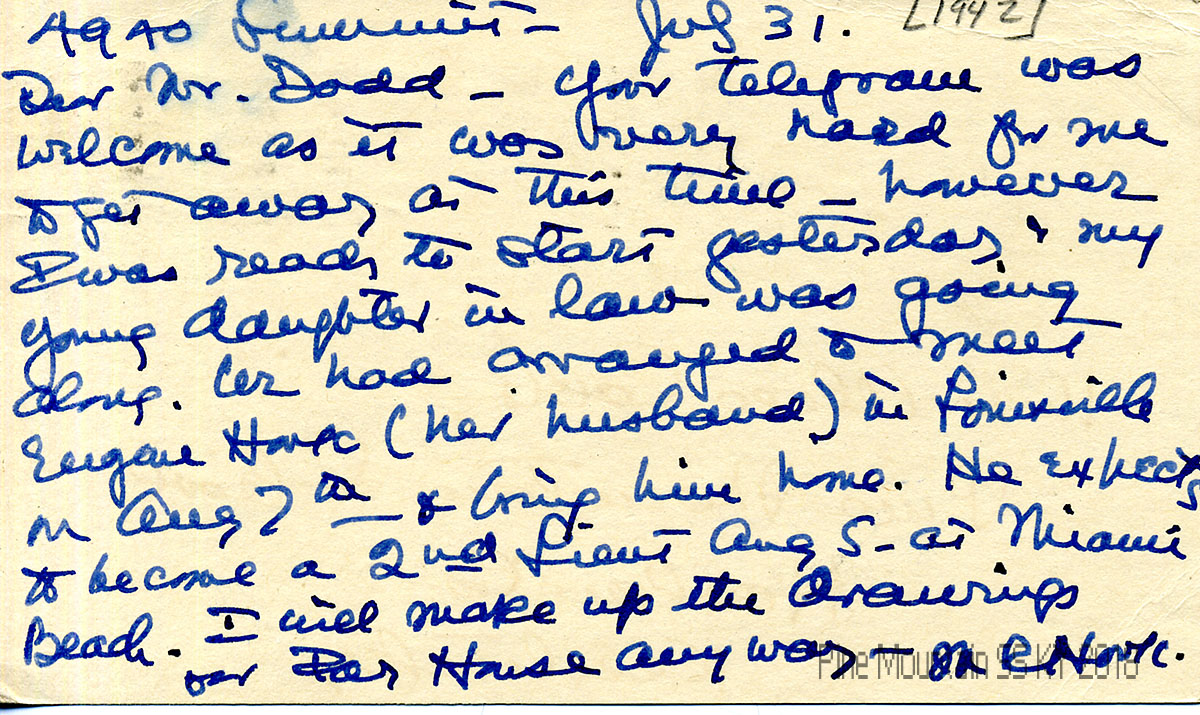 4940 Summit - July 31. [1942]
Dear Mr. Dodd - Your telegram was
welcome as it was very hard for me
to get away at this time - however
I was ready to start yesterday & my
young daughter in law was going
along. We had arranged to meet
Eugene Hook (her husband) in Louisville
on Aug 7th & bring him home. He expects
to become a 2nd Lieut Aug 5 - at Miami
Beach. I will make up the drawings
for Far House anyway - M R Hook.
Pine Mountain SS KY 2018